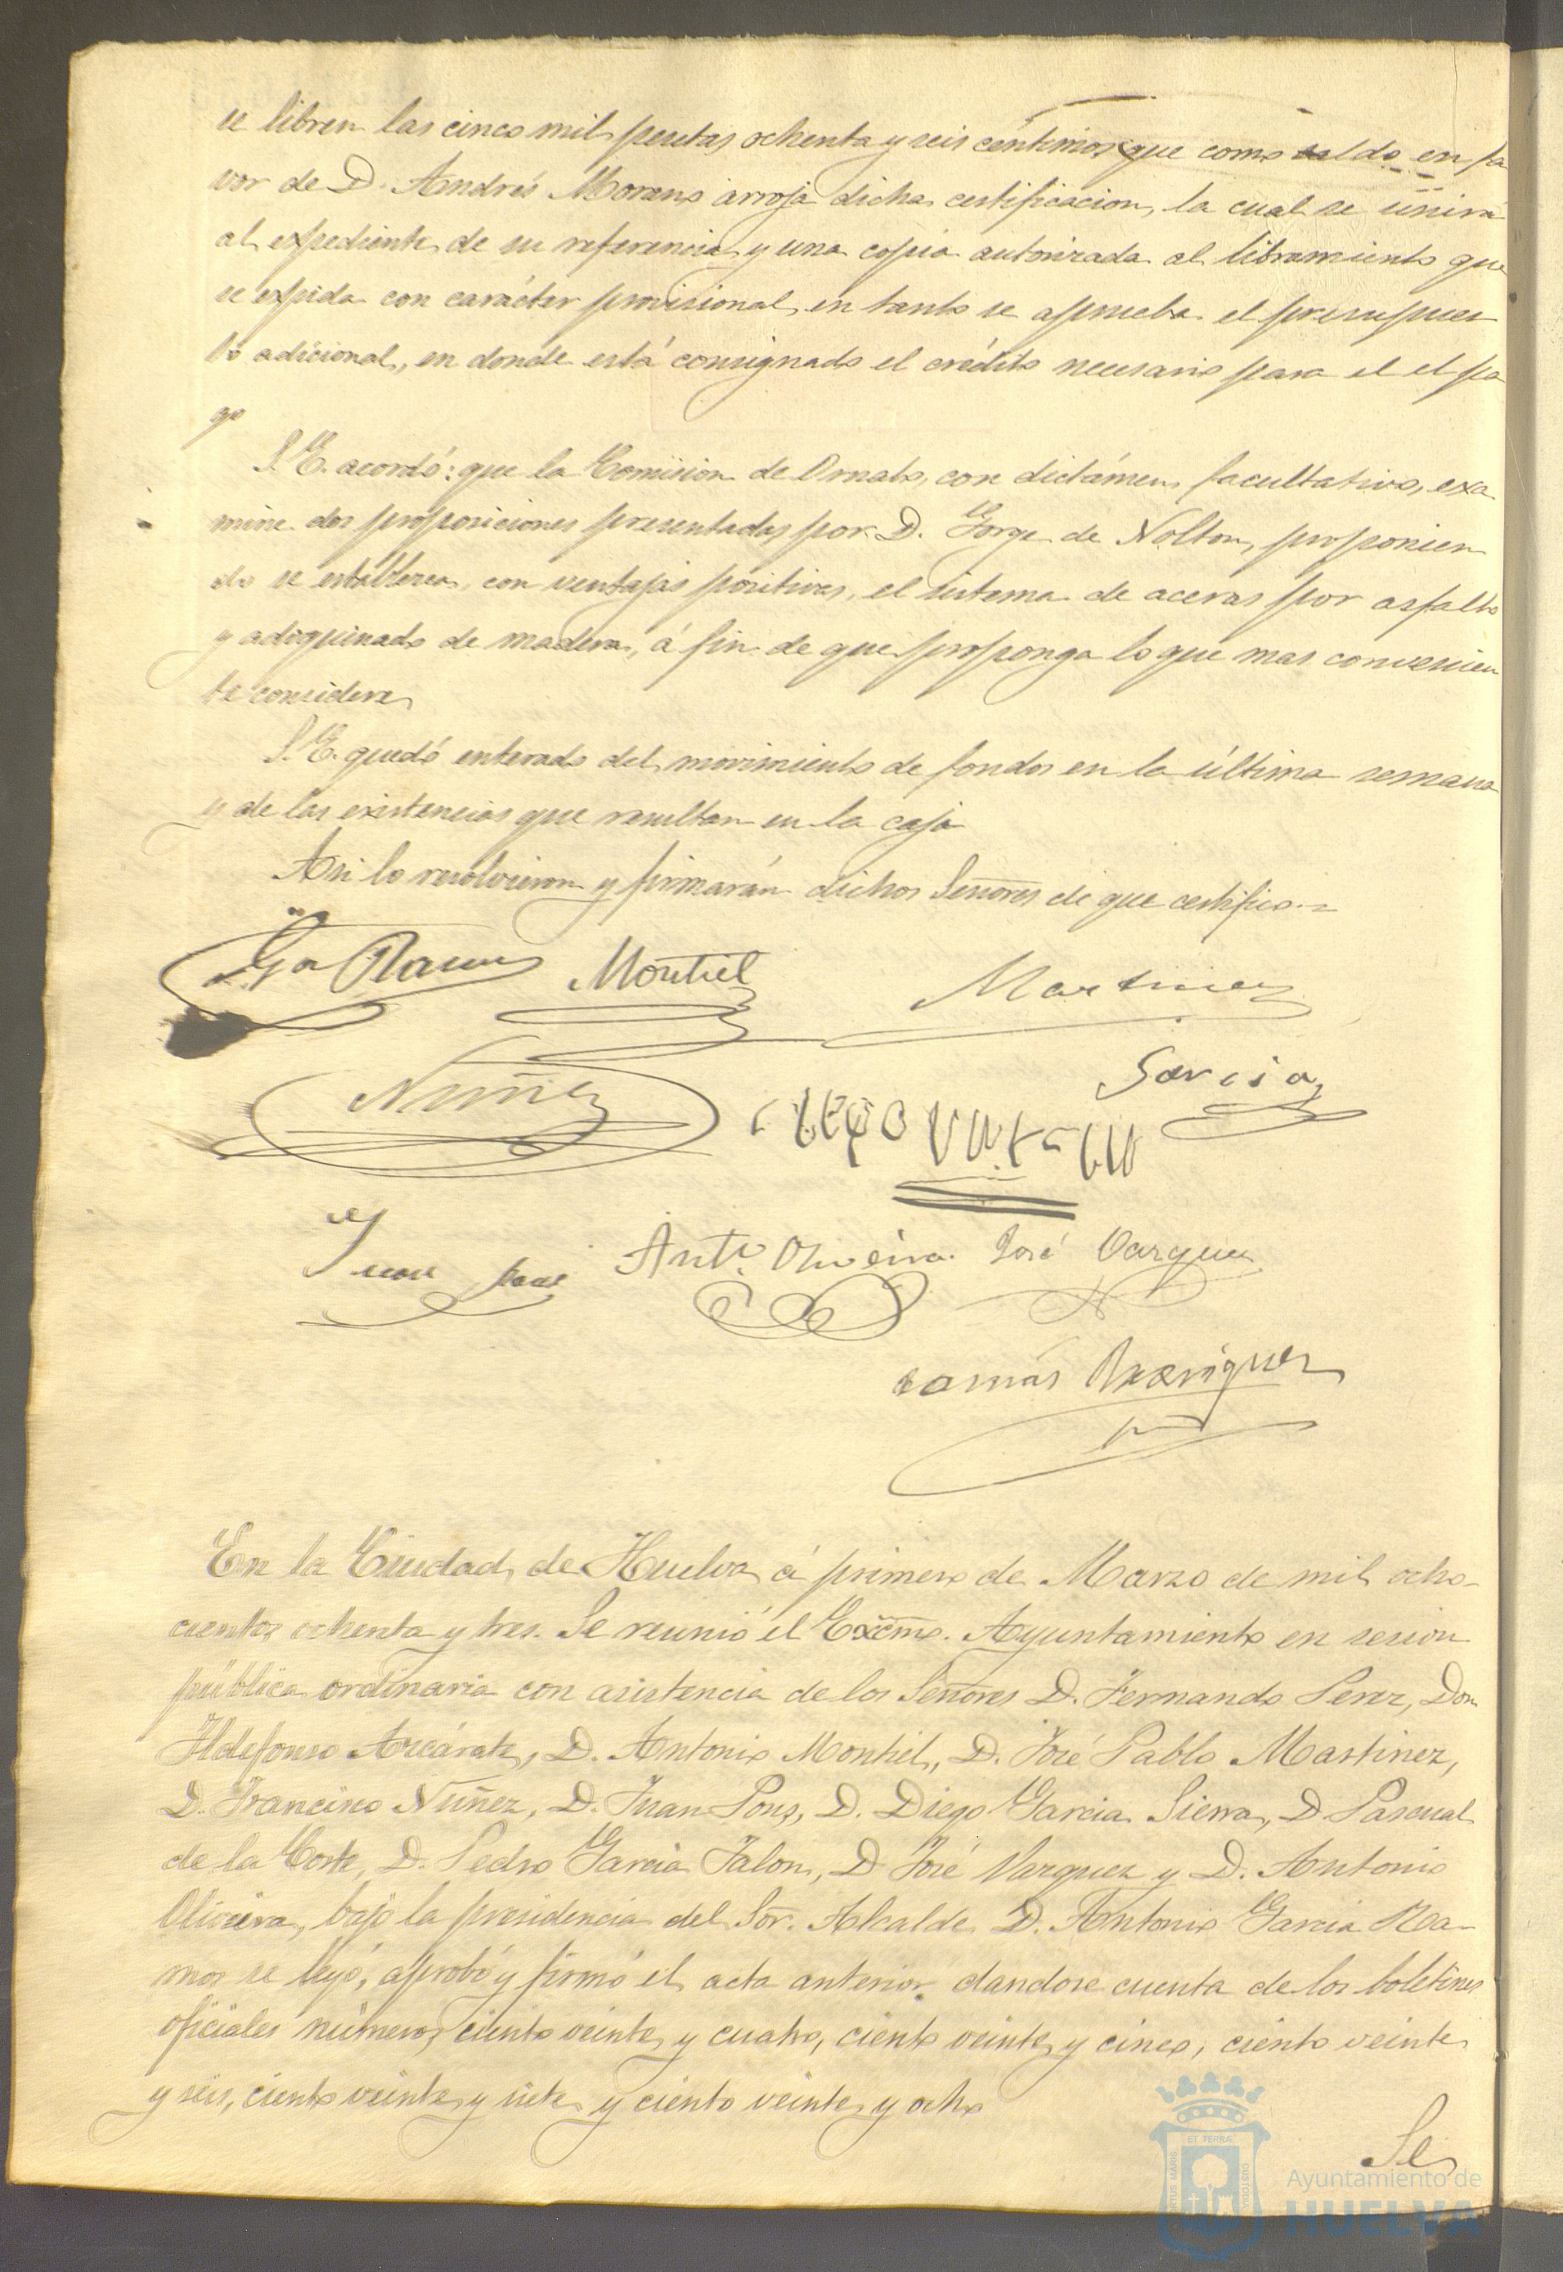 se libren las cinco mil pesetas ochenta y seis céntimos que como saldo en fa
vor de D. Andrés Moreno arroja dicha certificacion, la cual se unirá
al expediente de su referencia y una copia autorizada al libramiento que
se expida con carácter provisional, en tanto se aprueba el presupues
to adicional, en donde está consignado el crédito necesario para el el pa
go
S.E. acordó: que la Comision de Ornato, con dictámen facultativo, exa
mine dos proposiciones presentadas por D. Jorge de Nolton, proponien
do se establezca, con ventajas positivas, el sistema de aceras por asfalto
y adoquinado de madera, á fin de que proponga lo que mas convenien
te considere
S.E. quedó enterado del movimiento de fondos en la última semana
y de las existencias que resultan en la caja
Asi lo resolvieron y firmarán dichos Señores de que certifico.=
Ga Ramos Montiel Martinez
Nuñez Garcia
Juan Pons Anto. Oliveira José Vazquez
Tomás Rodriguez
En la Ciudad de Huelva á primero de Marzo de mil ocho-
cientos ochenta y tres. Se reunió el Excmo. Ayuntamiento en sesion
pública ordinaria con asistencia de los Señores D. Fernando Perez, Don
Ildefonso Azcárate, D. Antonio Montiel, D. José Pablo Martinez,
D. Francisco Nuñez, D. Juan Pons, D. Diego Garcia Sierra, D Pascual
de la Corte, D. Pedro Garcia Jalon, D José Vazquez y D. Antonio
Oliveira, bajo la presidencia del Sor. Alcalde D. Antonio Garcia Ra-
mos se leyó, aprobó y firmó el acta anterior dandose cuenta de los boletines
oficiales números ciento veinte y cuatro, ciento veinte y cinco, ciento veinte
y seis, ciento veinte y siete y ciento veinte y ocho
Se
Ayuntamiento de
HUELVA